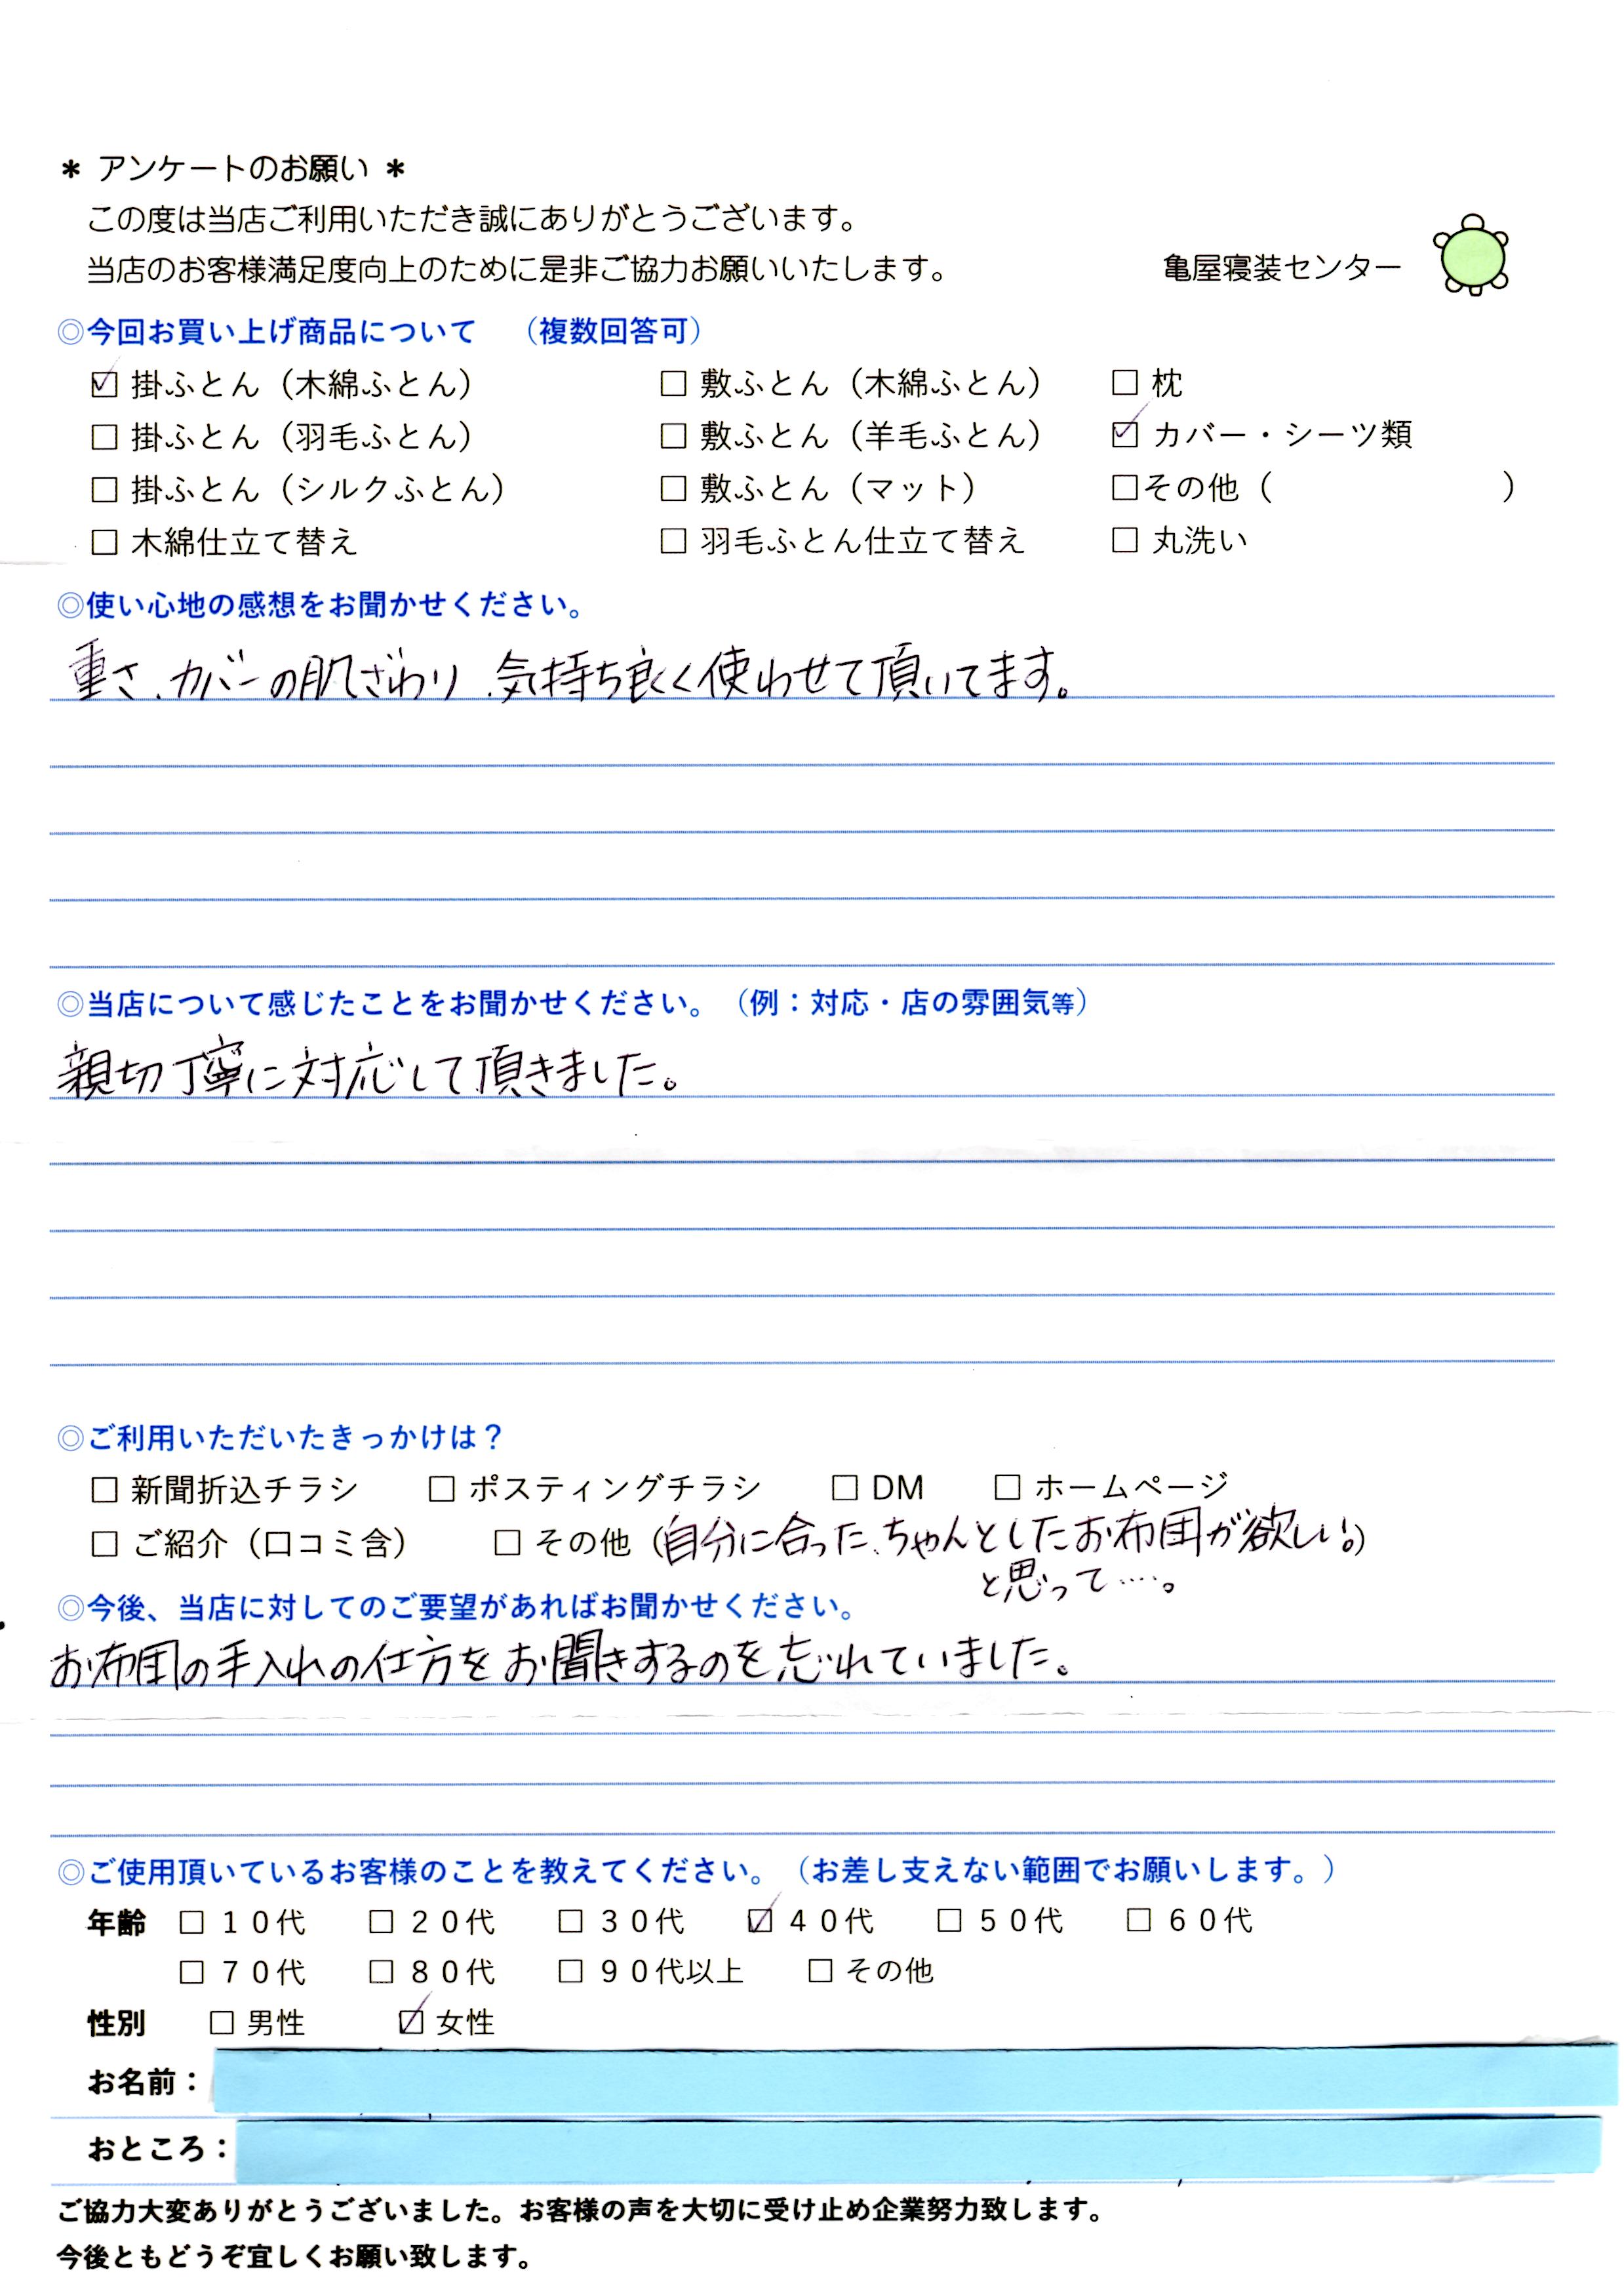 ＊ アンケートのお願い ＊
この度は当店ご利用いただき誠にありがとうございます。
当店のお客様満足度向上のために是非ご協力お願いいたします。 亀屋寝装センター
◎今回お買い上げ商品について （複数回答可）
☑ 掛ふとん（木綿ふとん） □ 敷ふとん（木綿ふとん） □ 枕
□ 掛ふとん（羽毛ふとん） □ 敷ふとん（羊毛ふとん） ☑ カバー・シーツ類
□ 掛ふとん（シルクふとん） □ 敷ふとん（マット） □その他（ ）
□ 木綿仕立て替え □ 羽毛ふとん仕立て替え □ 丸洗い
◎使い心地の感想をお聞かせください。
重さ、カバーの肌ざわり、気持ち良く使わせて頂いてます。
◎当店について感じたことをお聞かせください。（例：対応・店の雰囲気等）
親切丁寧に対応して頂きました。
◎ご利用いただいたきっかけは？
□ 新聞折込チラシ □ ポスティングチラシ □ DM □ ホームページ
□ ご紹介（口コミ含） □ その他（自分に合った、ちゃんとしたお布団が欲しい。）
と思って…。
◎今後、当店に対してのご要望があればお聞かせください。
お布団の手入れの仕方をお聞きするのを忘れていました。
◎ご使用頂いているお客様のことを教えてください。（お差し支えない範囲でお願いします。）
年齢 □ １０代 □ ２０代 □ ３０代 ☑ ４０代 □ ５０代 □ ６０代
□ ７０代 □ ８０代 □ ９０代以上 □ その他
性別 □ 男性 ☑ 女性
お名前：
おところ：
ご協力大変ありがとうございました。お客様の声を大切に受け止め企業努力致します。
今後ともどうぞ宜しくお願い致します。